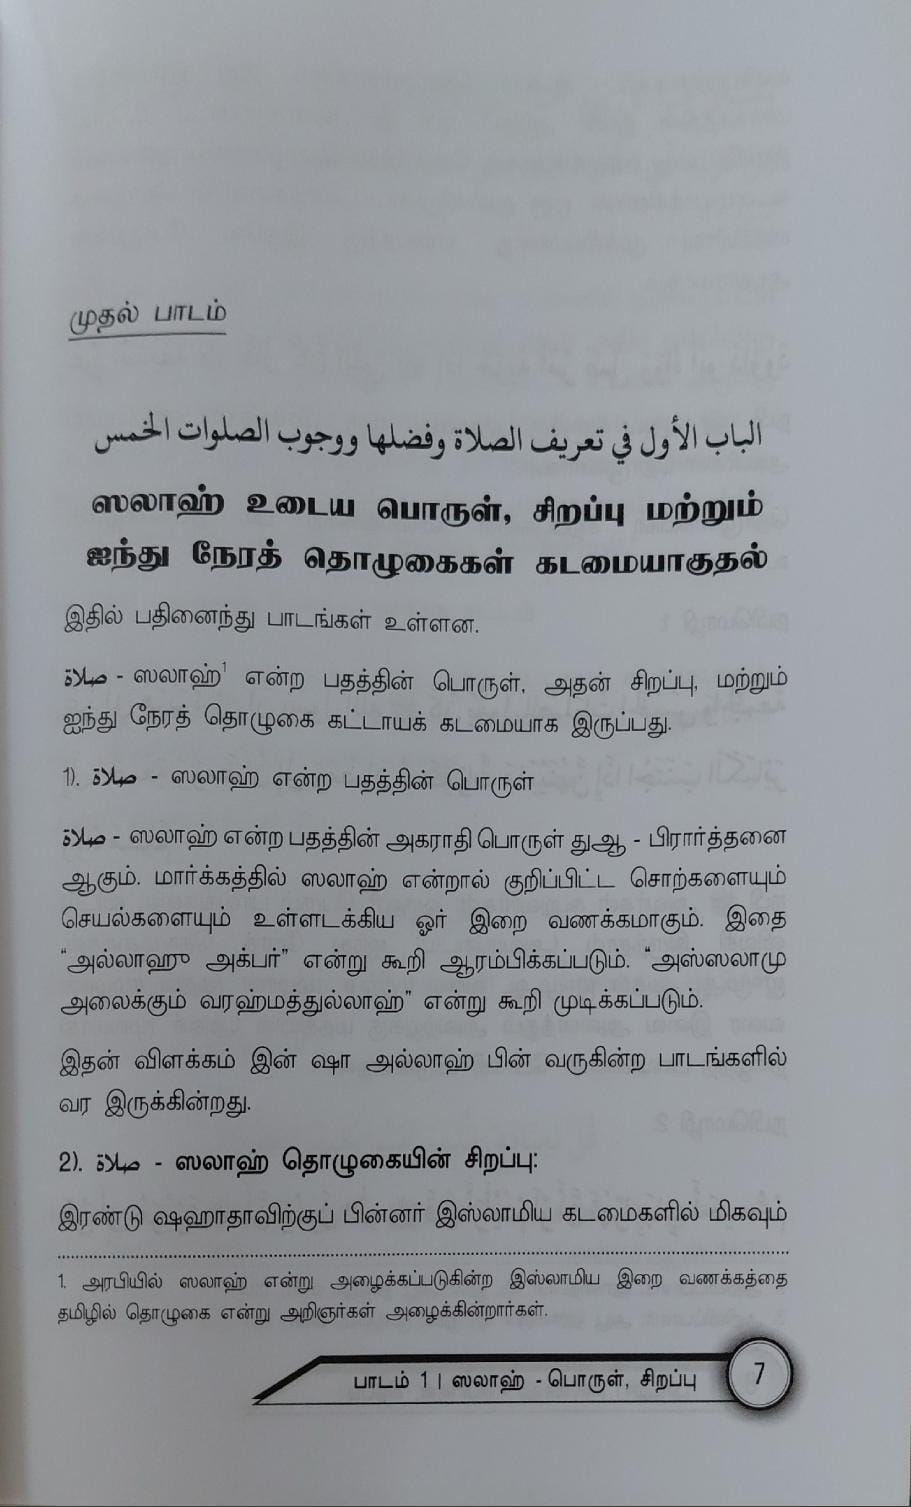 முதல் பாடம்
الباب الأول في تعريف الصلاة وفضلها ووجوب الصلوات الخمس
ஸலாஹ் உடைய பொருள், சிறப்பு மற்றும்
ஐந்து நேரத் தொழுகைகள் கடமையாகுதல்
இதில் பதினைந்து பாடங்கள் உள்ளன.
صلاة - ஸலாஹ்1 என்ற பதத்தின் பொருள், அதன் சிறப்பு, மற்றும்
ஐந்து நேரத் தொழுகை கட்டாயக் கடமையாக இருப்பது.
1). صلاة - ஸலாஹ் என்ற பதத்தின் பொருள்
صلاة - ஸலாஹ் என்ற பதத்தின் அகராதி பொருள் துஆ - பிரார்த்தனை
ஆகும். மார்க்கத்தில் ஸலாஹ் என்றால் குறிப்பிட்ட சொற்களையும்
செயல்களையும் உள்ளடக்கிய ஓர் இறை வணக்கமாகும். இதை
“அல்லாஹு அக்பர்” என்று கூறி ஆரம்பிக்கப்படும். “அஸ்ஸலாமு
அலைக்கும் வரஹ்மத்துல்லாஹ்” என்று கூறி முடிக்கப்படும்.
இதன் விளக்கம் இன் ஷா அல்லாஹ் பின் வருகின்ற பாடங்களில்
வர இருக்கின்றது.
2). صلاة - ஸலாஹ் தொழுகையின் சிறப்பு:
இரண்டு ஷஹாதாவிற்குப் பின்னர் இஸ்லாமிய கடமைகளில் மிகவும்
1. அரபியில் ஸலாஹ் என்று அழைக்கப்படுகின்ற இஸ்லாமிய இறை வணக்கத்தை
தமிழில் தொழுகை என்று அறிஞர்கள் அழைக்கின்றார்கள்.
பாடம் 1 | ஸலாஹ் - பொருள், சிறப்பு 7